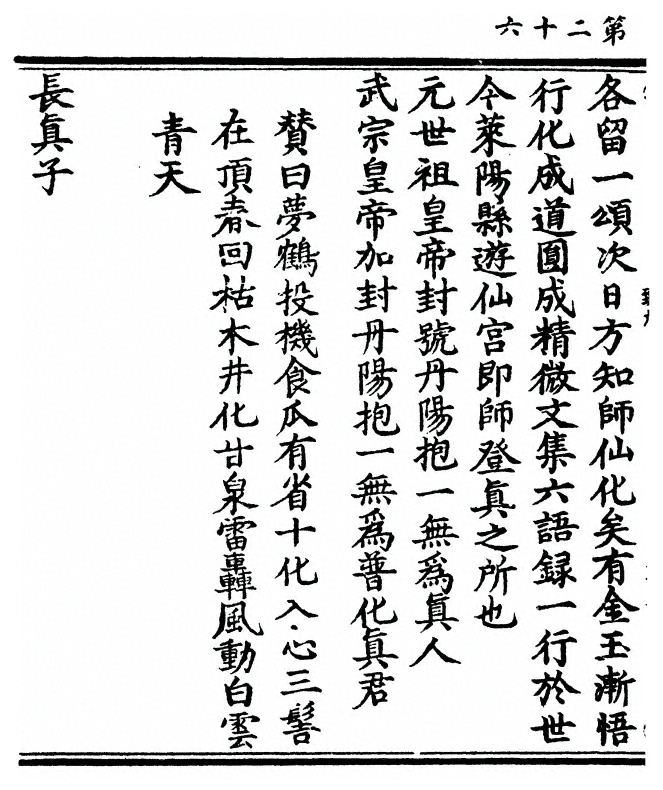 第二十六
各留一頌次日方知師仙化矣有金玉漸悟
行化成道圓成精微文集六語録一行於世
今萊陽縣遊仙宮即師登真之所也
元世祖皇帝封號丹陽抱一無爲真人
武宗皇帝加封丹陽抱一無爲普化真君
賛曰夢鶴投機食瓜有省十化入心三髻
在頂春回枯木井化甘泉雷轟風動白雲
青天
長真子